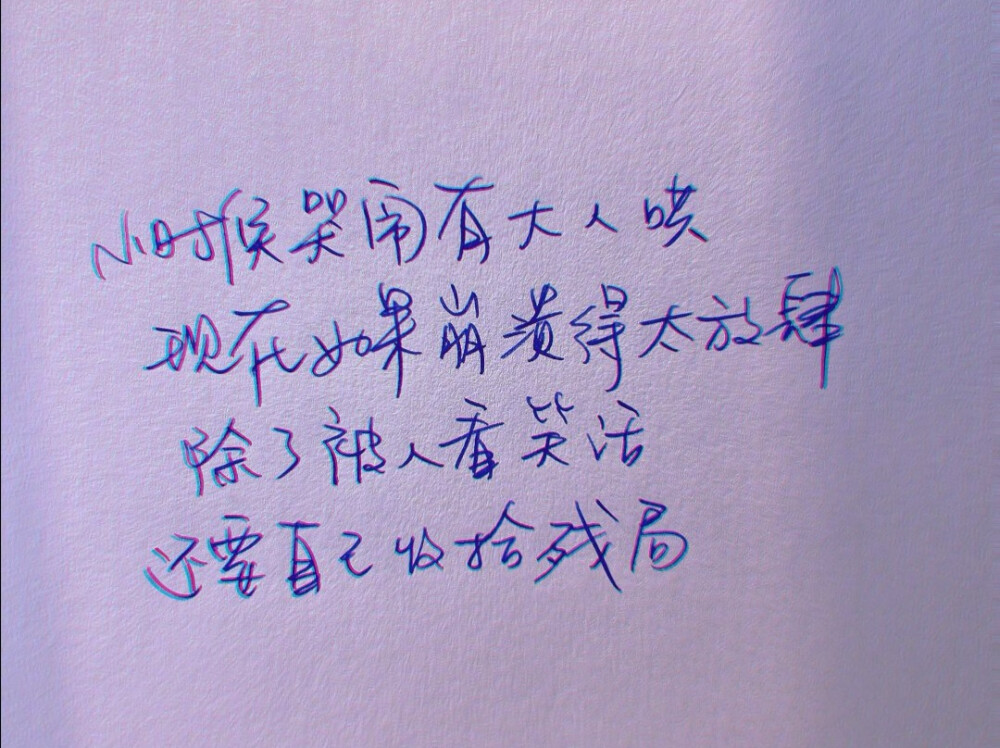 小时候哭闹有大人哄
现在如果崩溃得太放肆
除了被人看笑话
还要自己收拾残局